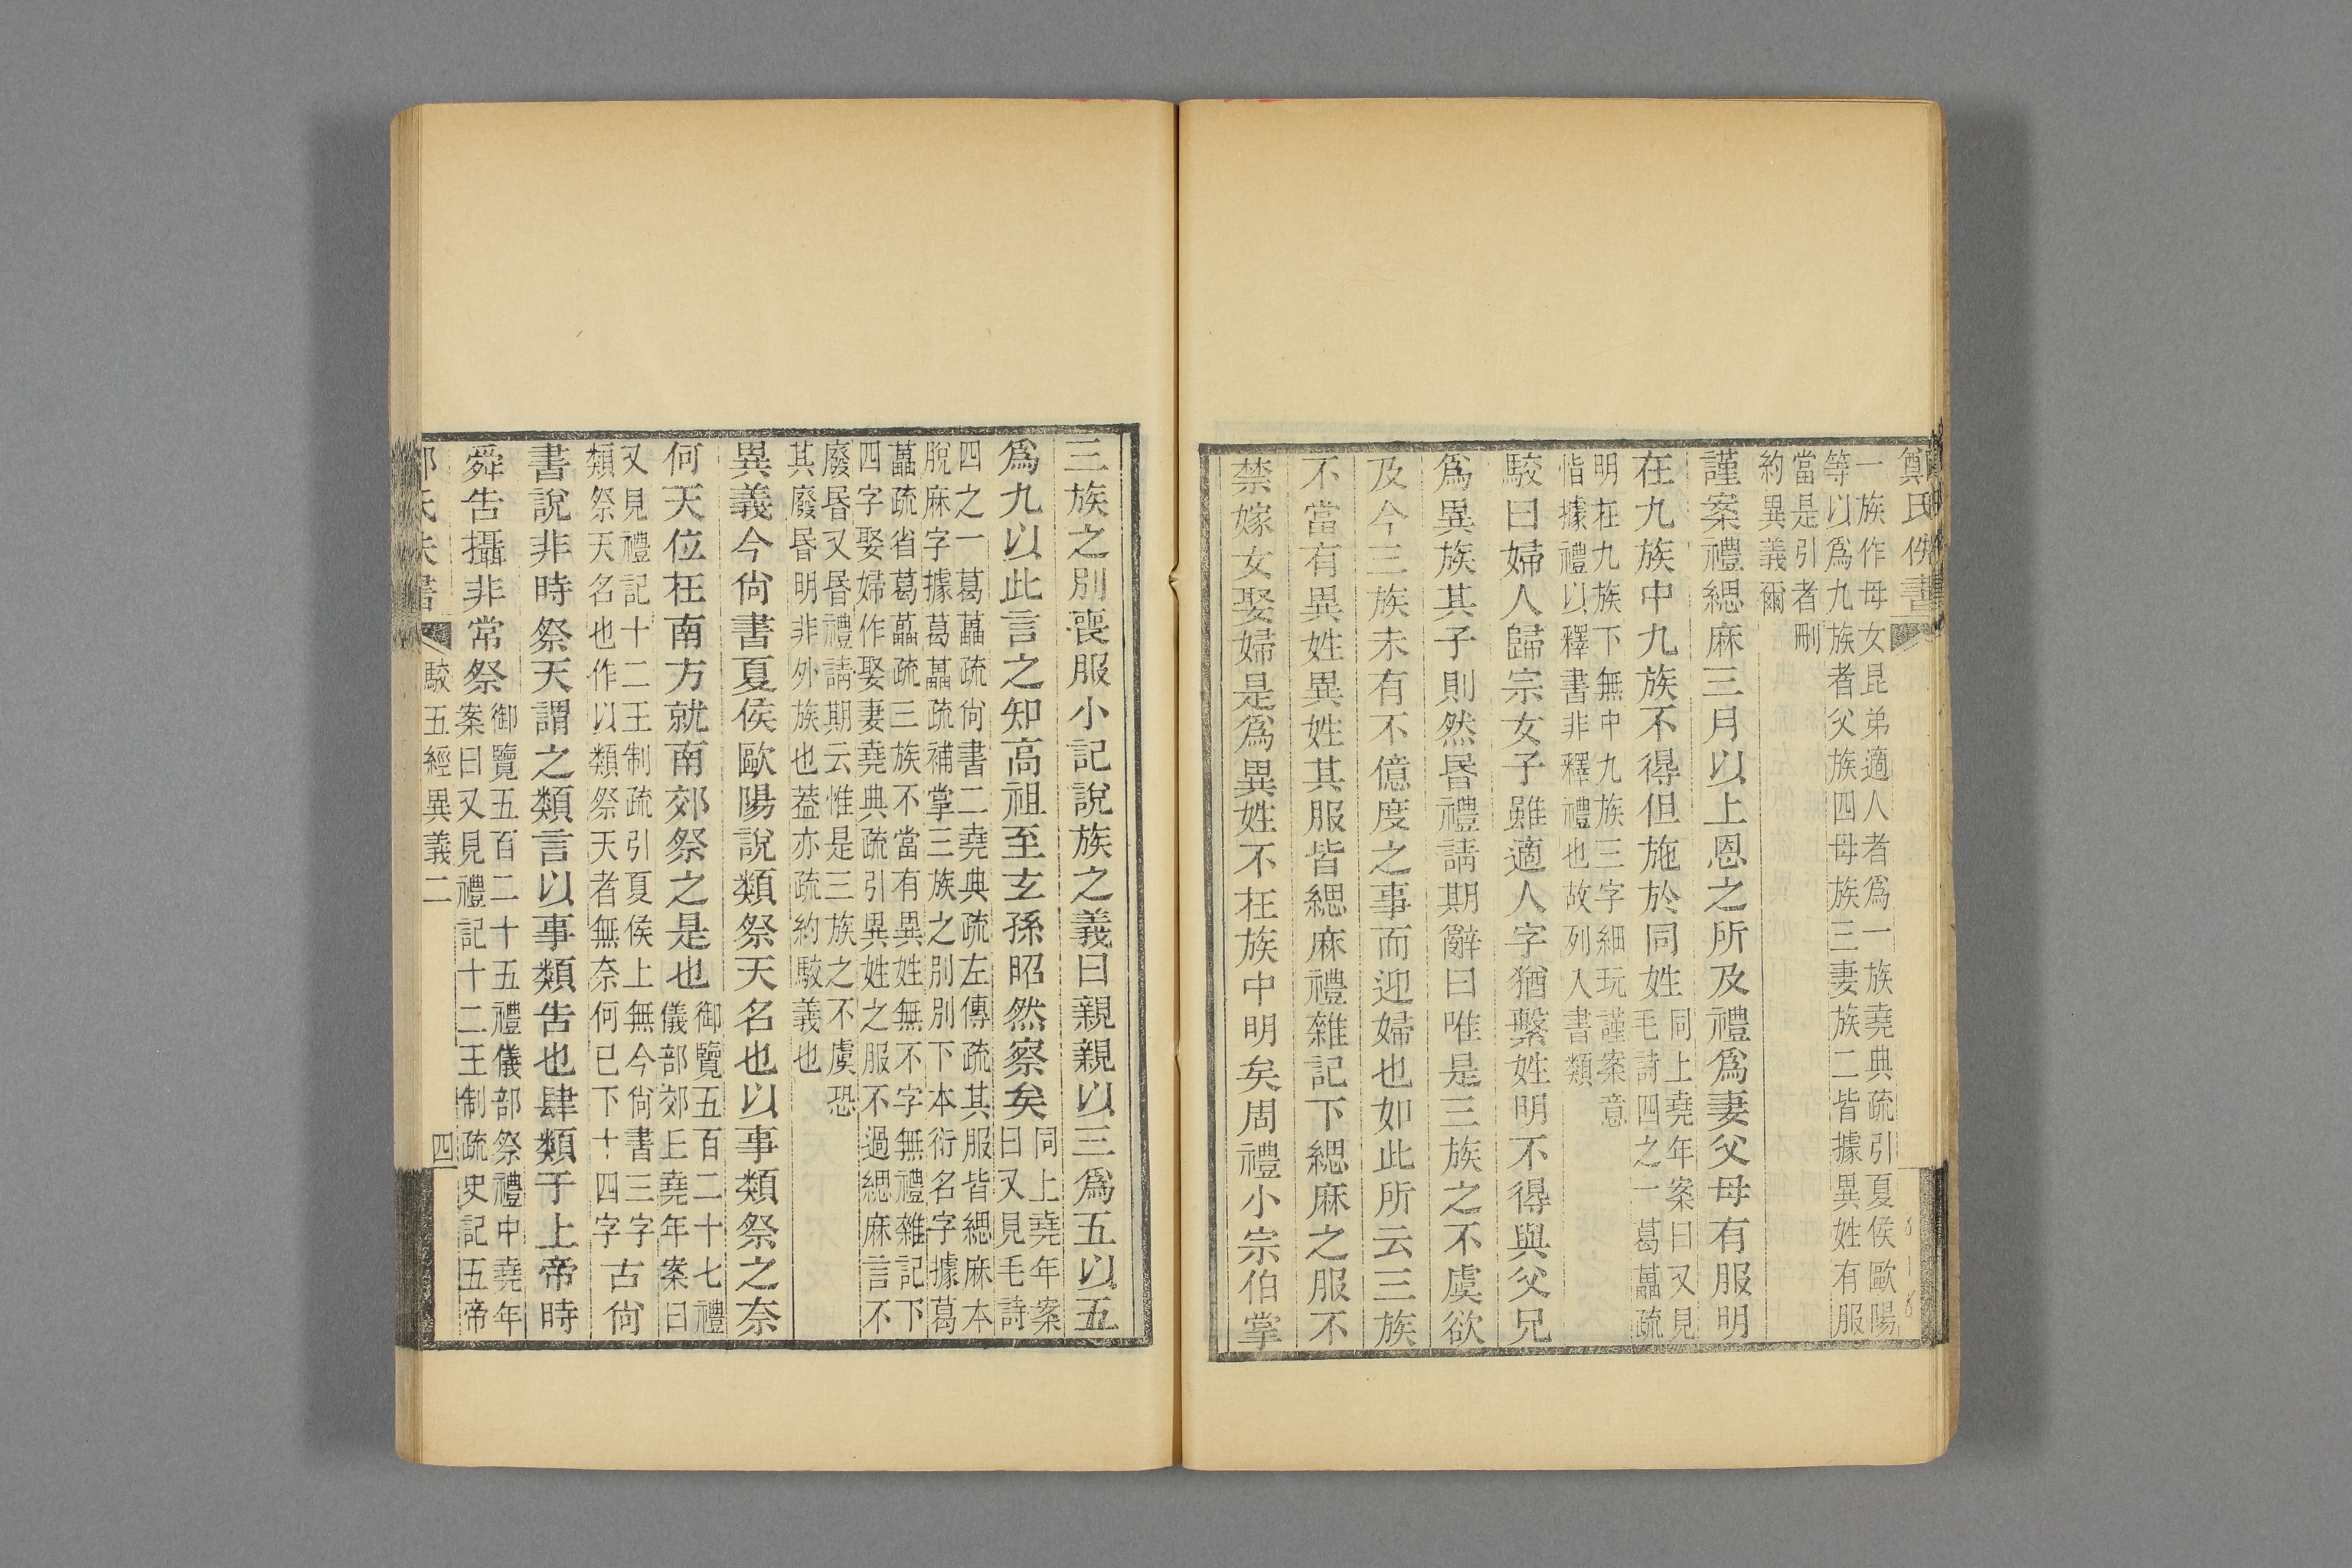 鄭氏佚書
一族作母女昆弟適人者爲一族堯典疏引夏侯歐陽
等以爲九族者父族四母族三妻族二皆據異姓有服
當是引者刪
約異義爾
謹案禮緦麻三月以上恩之所及禮爲妻父母有服明
在九族中九族不得但施於同姓
同上堯年案曰又見
毛詩四之一葛藟疏
明在九族下無中九族三字細玩謹案意
偕據禮以釋書非釋禮也故列入書類
駮曰婦人歸宗女子雖適人字猶繫姓明不得與父兄
爲異族其子則然昬禮請期辭曰唯是三族之不虞欲
及今三族未有不億度之事而迎婦也如此所云三族
不當有異姓異姓其服皆緦麻禮雜記下緦麻之服不
禁嫁女娶婦是爲異姓不在族中明矣周禮小宗伯掌
三族之別喪服小記說族之義曰親親以三爲五以五
爲九以此言之知高祖至玄孫昭然察矣
同上堯年案
曰又見毛詩
四之一葛藟疏尙書二堯典疏左傳疏其服皆緦麻本
脫麻字據葛藟疏補掌三族之別別下本衍名字據葛
藟疏省葛藟疏三族不當有異姓無不字無禮雜記下
四字娶婦作娶妻堯典疏引異姓之服不過緦麻言不
廢昬又昬禮請期云惟是三族之不虞恐
其廢昬明非外族也葢亦疏約駮義也
異義今尙書夏侯歐陽說類祭天名也以事類祭之奈
何天位在南方就南郊祭之是也
御覽五百二十七禮
儀部郊丘堯年案曰
又見禮記十二王制疏引夏侯上無今尙書三字
類祭天名也作以類祭天者無奈何已下十四字
古尙
書說非時祭天謂之類言以事類告也肆類于上帝時
舜告攝非常祭
御覽五百二十五禮儀部祭禮中堯年
案曰又見禮記十二王制疏史記五帝
鄭氏佚書
駮五經異義二
四